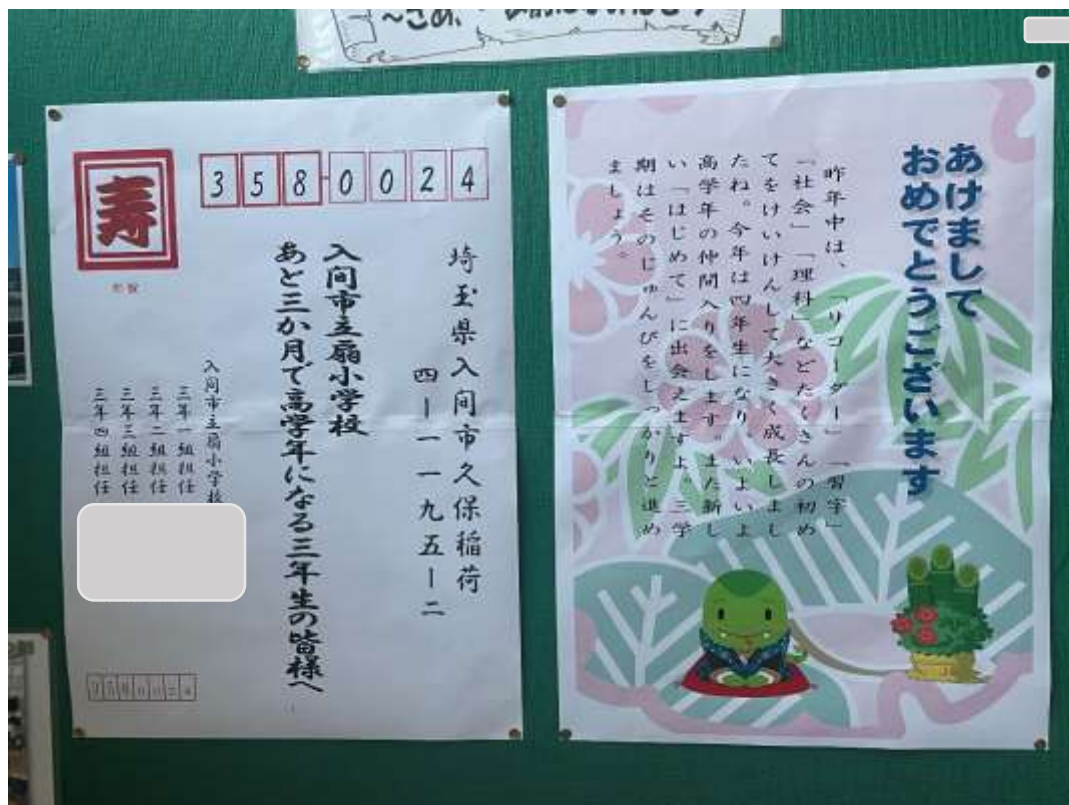 358-0024
寿
埼玉県入間市久保稲荷
四ー一ー一九五ー二
入間市立扇小学校
あと三か月で高学年になる三年生の皆様へ
入間市立扇小学校
三年一組担任
三年二組担任
三年三組担任
三年四組担任
あけまして
おめでとうございます
昨年中は、「リコーダー」「習字」
「社会」「理科」などたくさんの初め
てをけいけんして大きく成長しまし
たね。今年は四年生になり。いよいよ
高学年の仲間入りをします。また新し
い「はじめて」に出会えますよ。三学
期はそのじゅんびをしっかりと進め
ましょう。